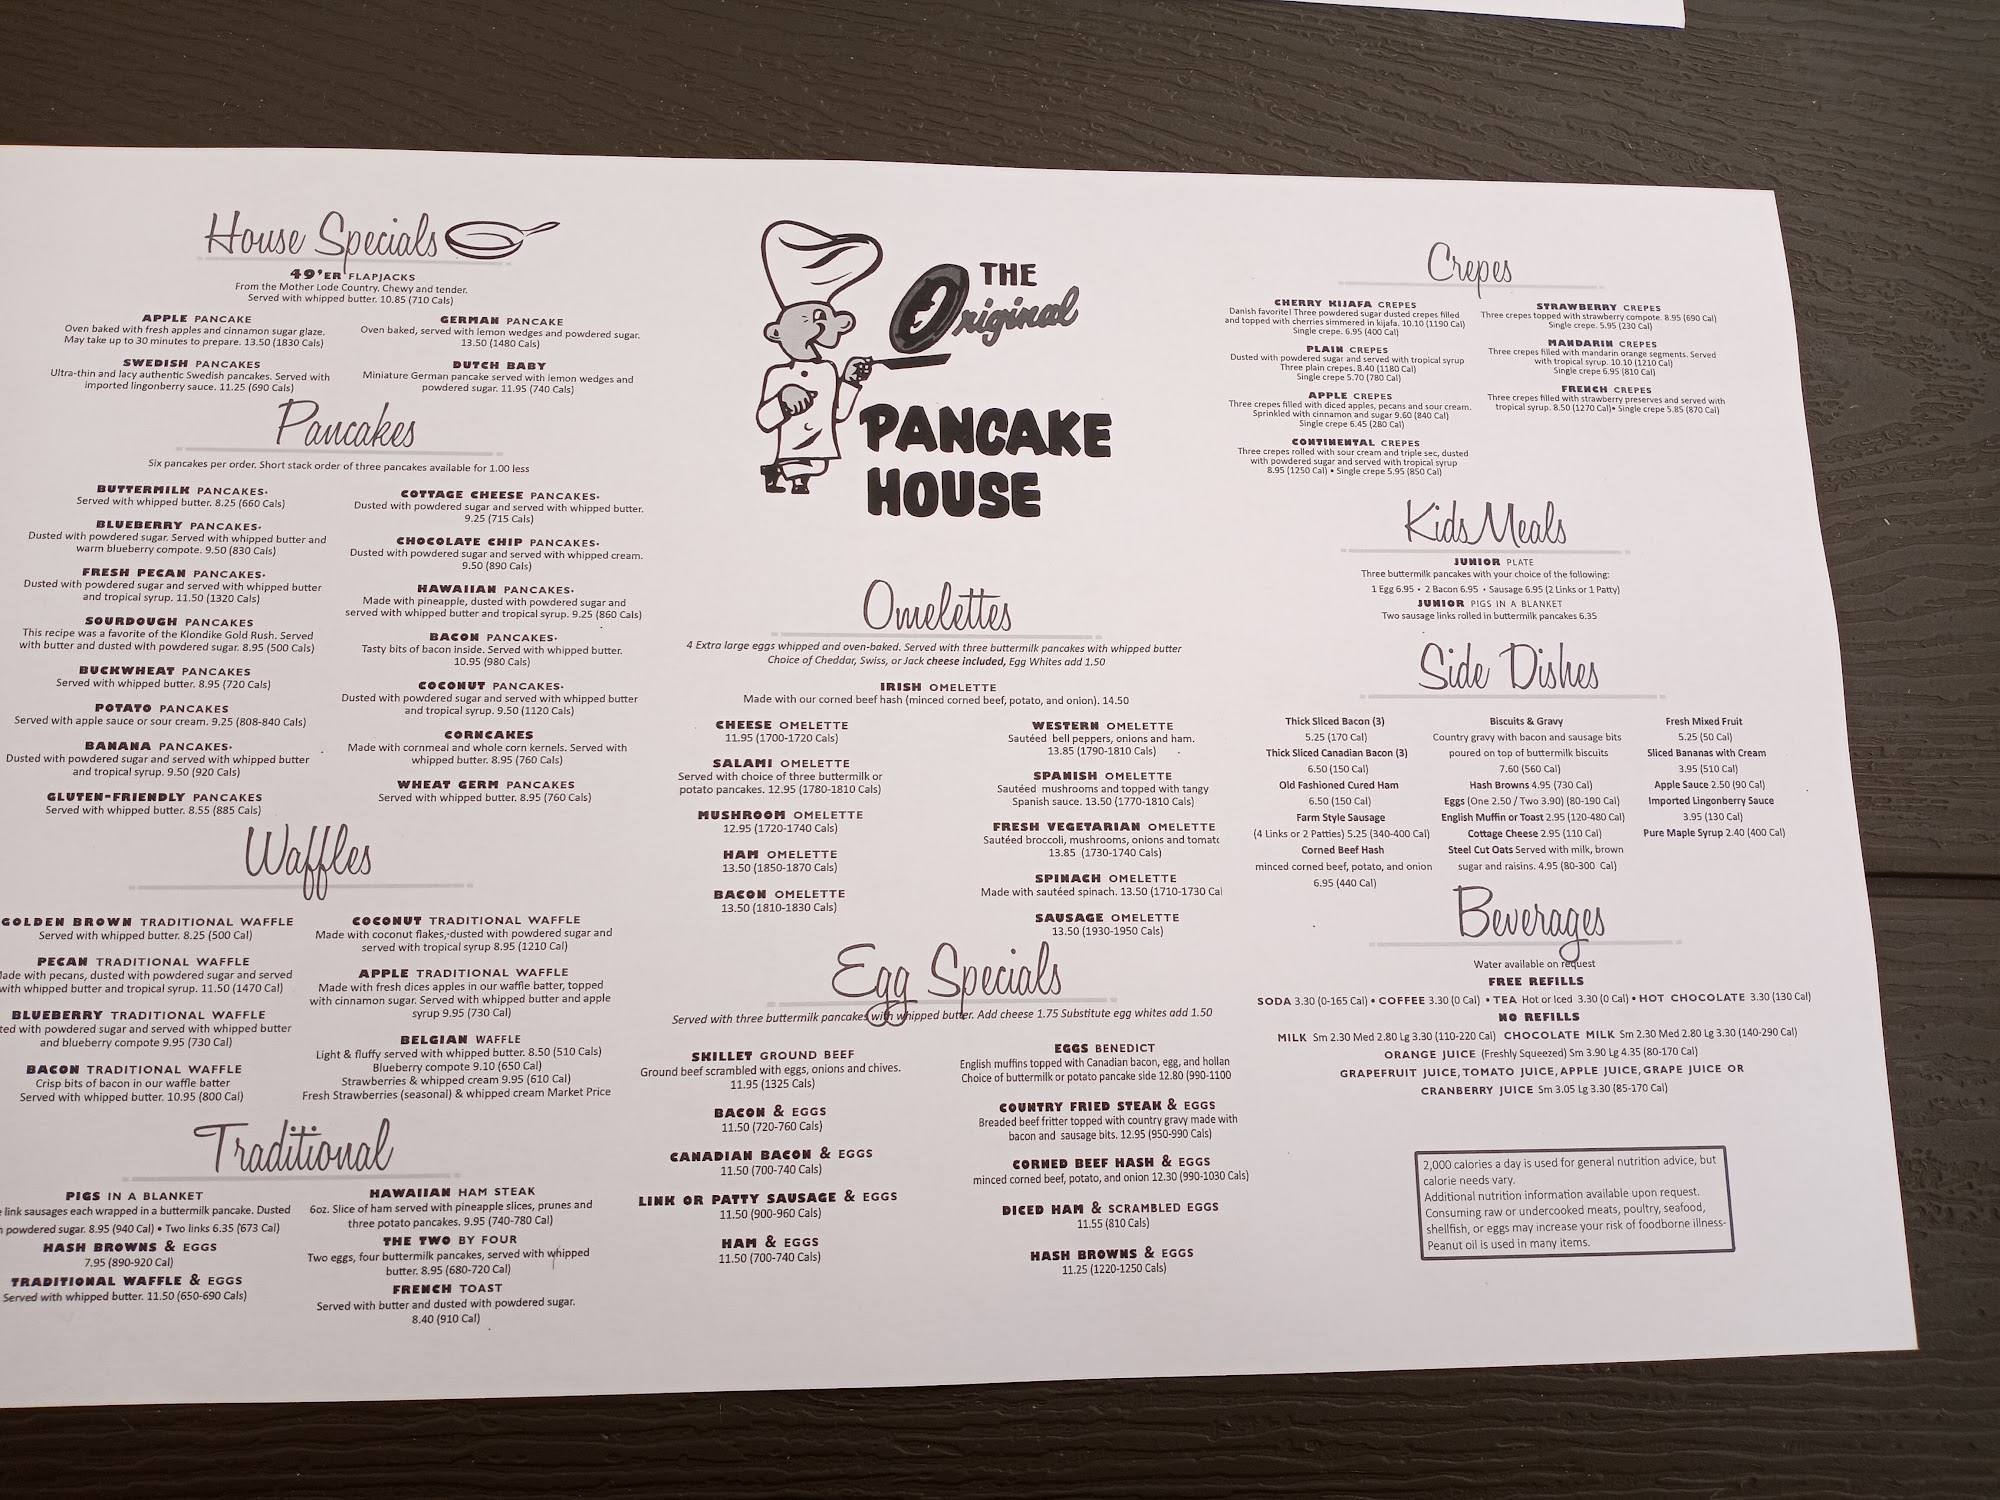 House Specials
49'ER FLAPJACKS
From the Mother Lode Country. Chewy and tender.
Served with whipped butter. 10.85 (710 Cals)
APPLE PANCAKE
Oven baked with fresh apples and cinnamon sugar glaze.
May take up to 30 minutes to prepare. 13.50 (1830 Cals)
SWEDISH PANCAKES
Ultra-thin and lacy authentic Swedish pancakes. Served with
imported lingonberry sauce. 11.25 (690 Cals)
GERMAN PANCAKE
Oven baked, served with lemon wedges and powdered sugar.
13.50 (1480 Cals)
DUTCH BABY
Miniature German pancake served with lemon wedges and
powdered sugar. 11.95 (740 Cals)
Pancakes
Six pancakes per order. Short stack order of three pancakes available for 1.00 less
BUTTERMILK PANCAKES•
Served with whipped butter. 8.25 (660 Cals)
BLUEBERRY PANCAKES•
Dusted with powdered sugar. Served with whipped butter and
warm blueberry compote. 9.50 (830 Cals)
FRESH PECAN PANCAKES•
Dusted with powdered sugar and served with whipped butter
and tropical syrup. 11.50 (1320 Cals)
SOURDOUGH PANCAKES
This recipe was a favorite of the Klondike Gold Rush. Served
with butter and dusted with powdered sugar. 8.95 (500 Cals)
BUCKWHEAT PANCAKES
Served with whipped butter. 8.95 (720 Cals)
POTATO PANCAKES
Served with apple sauce or sour cream. 9.25 (808-840 Cals)
BANANA PANCAKES•
Dusted with powdered sugar and served with whipped butter
and tropical syrup. 9.50 (920 Cals)
GLUTEN-FRIENDLY PANCAKES
Served with whipped butter. 8.55 (885 Cals)
COTTAGE CHEESE PANCAKES•
Dusted with powdered sugar and served with whipped butter.
9.25 (715 Cals)
CHOCOLATE CHIP PANCAKES•
Dusted with powdered sugar and served with whipped cream.
9.50 (890 Cals)
HAWAIIAN PANCAKES•
Made with pineapple, dusted with powdered sugar and
served with whipped butter and tropical syrup. 9.25 (860 Cals)
BACON PANCAKES•
Tasty bits of bacon inside. Served with whipped butter.
10.95 (980 Cals)
COCONUT PANCAKES•
Dusted with powdered sugar and served with whipped butter
and tropical syrup. 9.50 (1120 Cals)
CORNCAKES
Made with cornmeal and whole corn kernels. Served with
whipped butter. 8.95 (760 Cals)
WHEAT GERM PANCAKES
Served with whipped butter. 8.95 (760 Cals)
Waffles
GOLDEN BROWN TRADITIONAL WAFFLE
Served with whipped butter. 8.25 (500 Cal)
PECAN TRADITIONAL WAFFLE
ade with pecans, dusted with powdered sugar and served
with whipped butter and tropical syrup. 11.50 (1470 Cal)
BLUEBERRY TRADITIONAL WAFFLE
ted with powdered sugar and served with whipped butter
and blueberry compote 9.95 (730 Cal)
BACON TRADITIONAL WAFFLE
Crisp bits of bacon in our waffle batter
Served with whipped butter. 10.95 (800 Cal)
COCONUT TRADITIONAL WAFFLE
Made with coconut flakes, dusted with powdered sugar and
served with tropical syrup 8.95 (1210 Cal)
APPLE TRADITIONAL WAFFLE
Made with fresh dices apples in our waffle batter, topped
with cinnamon sugar. Served with whipped butter and apple
syrup 9.95 (730 Cal)
BELGIAN WAFFLE
Light & fluffy served with whipped butter. 8.50 (510 Cals)
Blueberry compote 9.10 (650 Cal)
Strawberries & whipped cream 9.95 (610 Cal)
Fresh Strawberries (seasonal) & whipped cream Market Price
Traditional
PIGS IN A BLANKET
e link sausages each wrapped in a buttermilk pancake. Dusted
h powdered sugar. 8.95 (940 Cal) • Two links 6.35 (673 Cal)
HASH BROWNS & EGGS
7.95 (890-920 Cal)
TRADITIONAL WAFFLE & EGGS
Served with whipped butter. 11.50 (650-690 Cals)
HAWAIIAN HAM STEAK
6oz. Slice of ham served with pineapple slices, prunes and
three potato pancakes. 9.95 (740-780 Cal)
THE TWO BY FOUR
Two eggs, four buttermilk pancakes, served with whipped
butter. 8.95 (680-720 Cal)
FRENCH TOAST
Served with butter and dusted with powdered sugar.
8.40 (910 Cal)
THE
Original
PANCAKE
HOUSE
Omelettes
4 Extra large eggs whipped and oven-baked. Served with three buttermilk pancakes with whipped butter
Choice of Cheddar, Swiss, or Jack cheese included, Egg Whites add 1.50
IRISH OMELETTE
Made with our corned beef hash (minced corned beef, potato, and onion). 14.50
CHEESE OMELETTE
11.95 (1700-1720 Cals)
SALAMI OMELETTE
Served with choice of three buttermilk or
potato pancakes. 12.95 (1780-1810 Cals)
MUSHROOM OMELETTE
12.95 (1720-1740 Cals)
HAM OMELETTE
13.50 (1850-1870 Cals)
BACON OMELETTE
13.50 (1810-1830 Cals)
WESTERN OMELETTE
Sautéed bell peppers, onions and ham.
13.85 (1790-1810 Cals)
SPANISH OMELETTE
Sautéed mushrooms and topped with tangy
Spanish sauce. 13.50 (1770-1810 Cals)
FRESH VEGETARIAN OMELETTE
Sautéed broccoli, mushrooms, onions and tomato
13.85 (1730-1740 Cals)
SPINACH OMELETTE
Made with sautéed spinach. 13.50 (1710-1730 Cal
SAUSAGE OMELETTE
13.50 (1930-1950 Cals)
Egg Specials
Served with three buttermilk pancakes with whipped butter. Add cheese 1.75 Substitute egg whites add 1.50
SKILLET GROUND BEEF
Ground beef scrambled with eggs, onions and chives.
11.95 (1325 Cals)
BACON & EGGS
11.50 (720-760 Cals)
CANADIAN BACON & EGGS
11.50 (700-740 Cals)
LINK OR PATTY SAUSAGE & EGGS
11.50 (900-960 Cals)
HAM & EGGS
11.50 (700-740 Cals)
EGGS BENEDICT
English muffins topped with Canadian bacon, egg, and hollan
Choice of buttermilk or potato pancake side 12.80 (990-1100
COUNTRY FRIED STEAK & EGGS
Breaded beef fritter topped with country gravy made with
bacon and sausage bits. 12.95 (950-990 Cals)
CORNED BEEF HASH & EGGS
minced corned beef, potato, and onion 12.30 (990-1030 Cals)
DICED HAM & SCRAMBLED EGGS
11.55 (810 Cals)
HASH BROWNS & EGGS
11.25 (1220-1250 Cals)
Crepes
CHERRY KIJAFA CREPES
Danish favorite! Three powdered sugar dusted crepes filled
and topped with cherries simmered in kijafa. 10.10 (1190 Cal)
Single crepe. 6.95 (400 Cal)
PLAIN CREPES
Dusted with powdered sugar and served with tropical syrup
Three plain crepes. 8.40 (1180 Cal)
Single crepe 5.70 (780 Cal)
APPLE CREPES
Three crepes filled with diced apples, pecans and sour cream.
Sprinkled with cinnamon and sugar 9.60 (840 Cal)
Single crepe 6.45 (280 Cal)
CONTINENTAL CREPES
Three crepes rolled with sour cream and triple sec, dusted
with powdered sugar and served with tropical syrup
8.95 (1250 Cal) • Single crepe 5.95 (850 Cal)
STRAWBERRY CREPES
Three crepes topped with strawberry compote. 8.95 (690 Cal)
Single crepe. 5.95 (230 Cal)
MANDARIN CREPES
Three crepes filled with mandarin orange segments. Served
with tropical syrup. 10.10 (1210 Cal)
Single crepe 6.95 (810 Cal)
FRENCH CREPES
Three crepes filled with strawberry preserves and served with
tropical syrup. 8.50 (1270 Cal)• Single crepe 5.85 (870 Cal)
Kids Meals
JUNIOR PLATE
Three buttermilk pancakes with your choice of the following:
1 Egg 6.95 • 2 Bacon 6.95 • Sausage 6.95 (2 Links or 1 Patty)
JUNIOR PIGS IN A BLANKET
Two sausage links rolled in buttermilk pancakes 6.35
Side Dishes
Thick Sliced Bacon (3)
5.25 (170 Cal)
Thick Sliced Canadian Bacon (3)
6.50 (150 Cal)
Old Fashioned Cured Ham
6.50 (150 Cal)
Farm Style Sausage
(4 Links or 2 Patties) 5.25 (340-400 Cal)
Corned Beef Hash
minced corned beef, potato, and onion
6.95 (440 Cal)
Biscuits & Gravy
Country gravy with bacon and sausage bits
poured on top of buttermilk biscuits
7.60 (560 Cal)
Hash Browns 4.95 (730 Cal)
Eggs (One 2.50 / Two 3.90) (80-190 Cal)
English Muffin or Toast 2.95 (120-480 Cal)
Cottage Cheese 2.95 (110 Cal)
Steel Cut Oats Served with milk, brown
sugar and raisins. 4.95 (80-300 Cal)
Fresh Mixed Fruit
5.25 (50 Cal)
Sliced Bananas with Cream
3.95 (510 Cal)
Apple Sauce 2.50 (90 Cal)
Imported Lingonberry Sauce
3.95 (130 Cal)
Pure Maple Syrup 2.40 (400 Cal)
Beverages
Water available on request
FREE REFILLS
SODA 3.30 (0-165 Cal) • COFFEE 3.30 (0 Cal) • TEA Hot or Iced 3.30 (0 Cal) • HOT CHOCOLATE 3.30 (130 Cal)
NO REFILLS
MILK Sm 2.30 Med 2.80 Lg 3.30 (110-220 Cal) CHOCOLATE MILK Sm 2.30 Med 2.80 Lg 3.30 (140-290 Cal)
ORANGE JUICE (Freshly Squeezed) Sm 3.90 Lg 4.35 (80-170 Cal)
GRAPEFRUIT JUICE, TOMATO JUICE, APPLE JUICE, GRAPE JUICE OR
CRANBERRY JUICE Sm 3.05 Lg 3.30 (85-170 Cal)
2,000 calories a day is used for general nutrition advice, but
calorie needs vary.
Additional nutrition information available upon request.
Consuming raw or undercooked meats, poultry, seafood,
shellfish, or eggs may increase your risk of foodborne illness-
Peanut oil is used in many items.